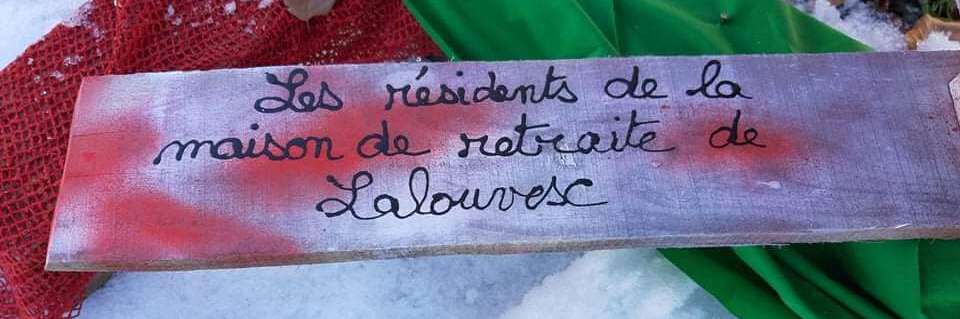 Les résidents de la
maison de retraite de
Lalouvesc